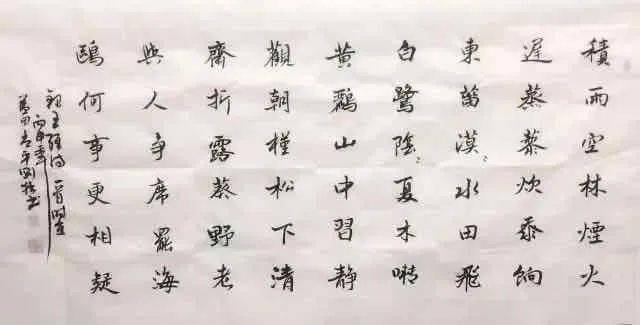 積雨空林煙火
遲蒸藜炊黍餉
東菑漠〻水田飛
白鷺陰〻夏木囀
黃鸝山中習靜
觀朝槿松下清
齋折露葵野老
與人爭席罷海
鷗何事更相疑
王維詩一首
丙申年